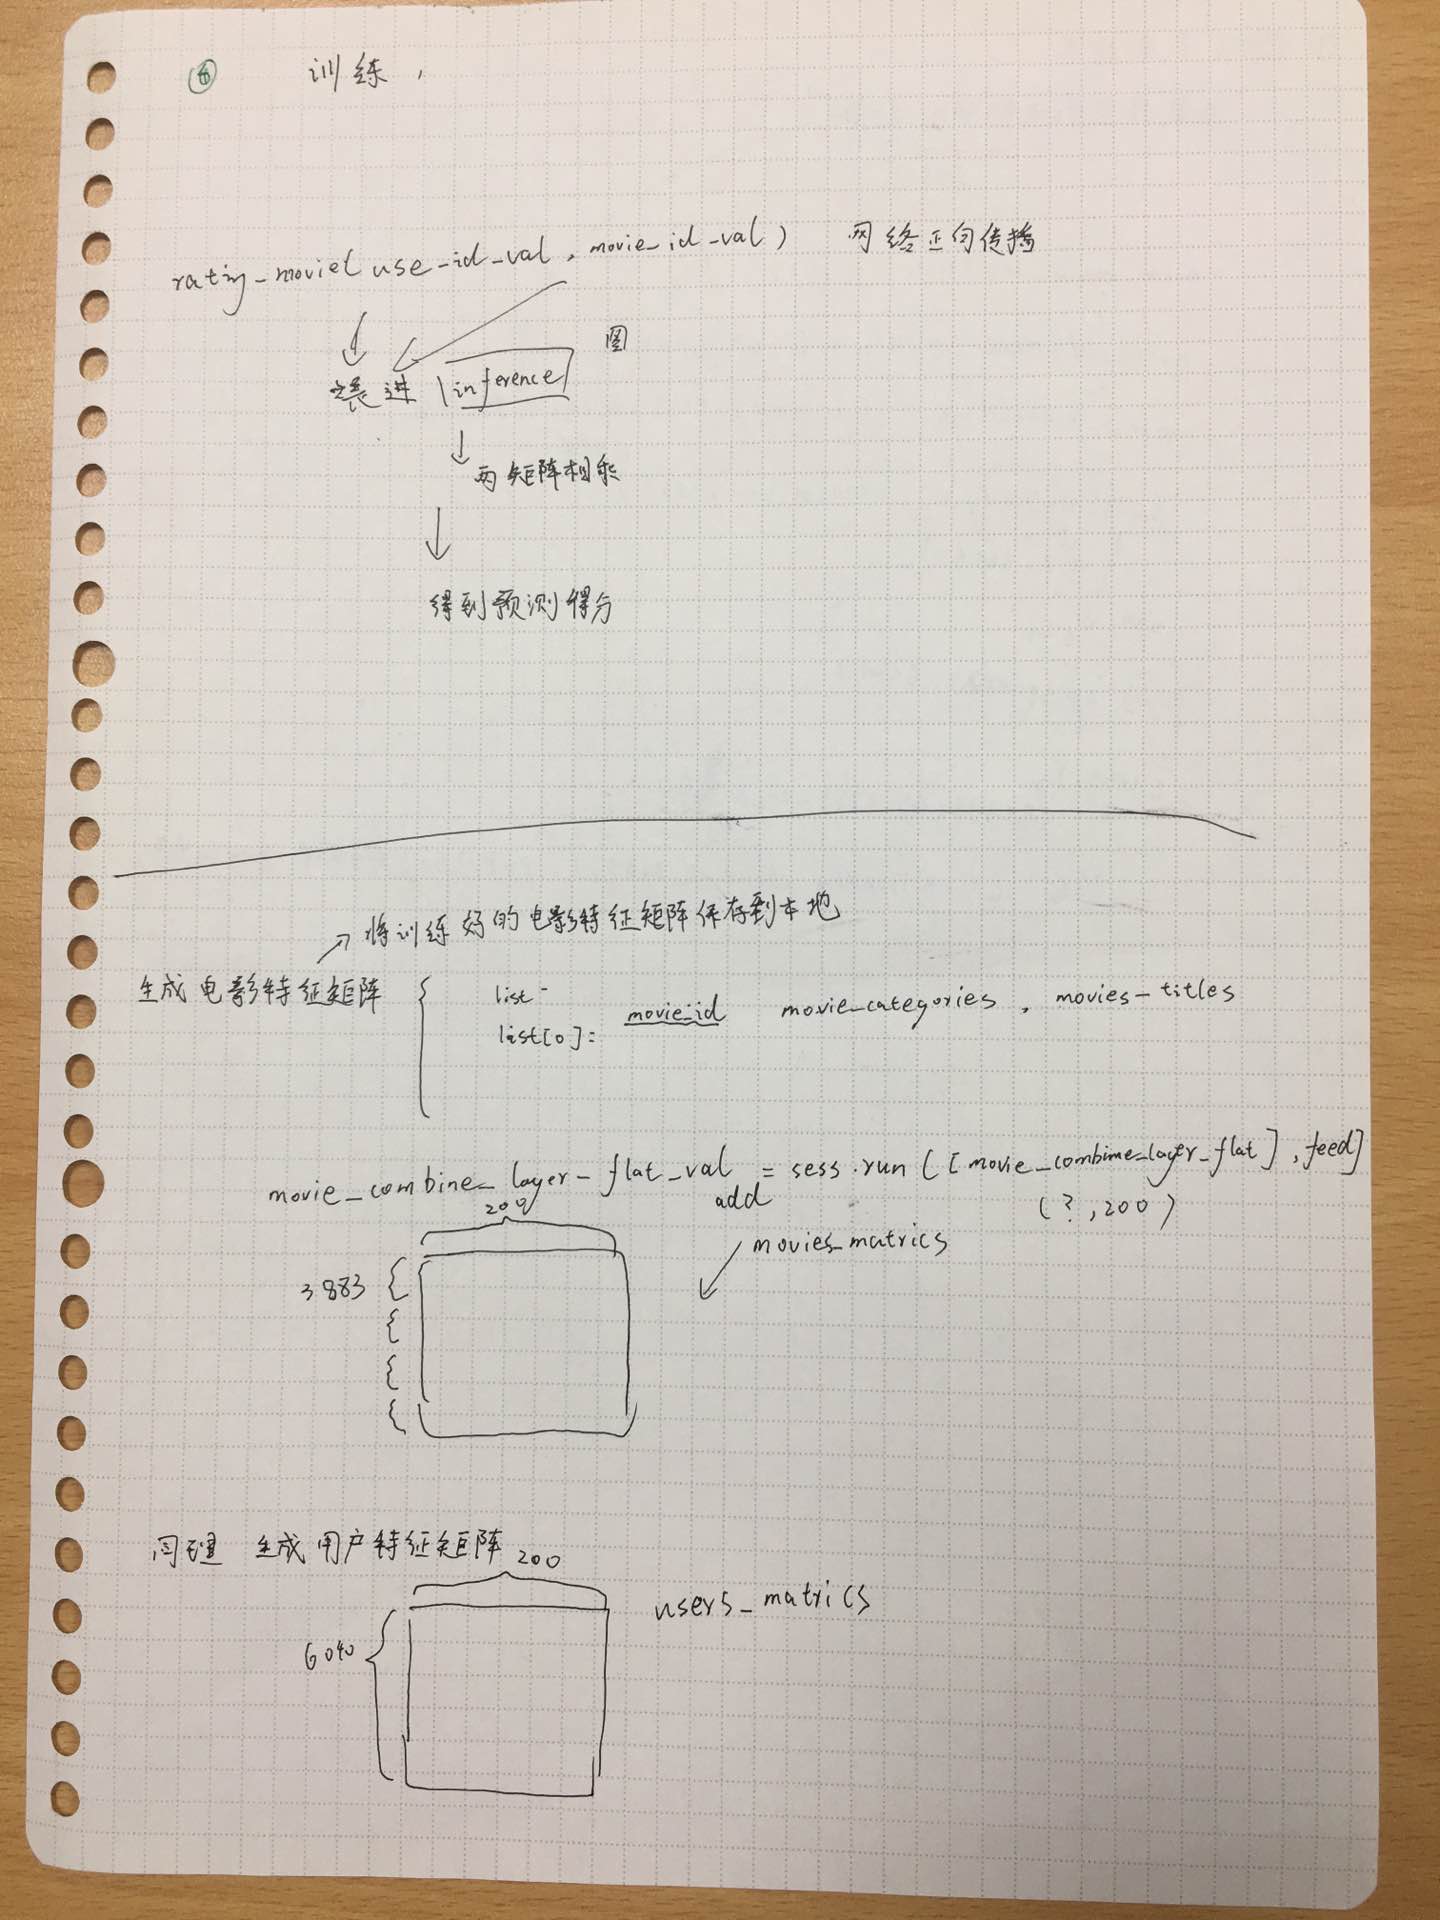 ⑥ 训练,
rating_movie( use_id_val, movie_id_val) 网络正向传播
图
装进 inference
两矩阵相乘
得到预测得分
将训练好的电影特征矩阵保存到本地
生成电影特征矩阵
list
list[0]: movie_id movie_categories, movies_titles
movie_combine_layer_flat_val = sess.run([movie_combine_layer_flat], feed]
200 add (?, 200)
movies_matrics
3883
同理 生成用户特征矩阵
200
users_matrics
6040